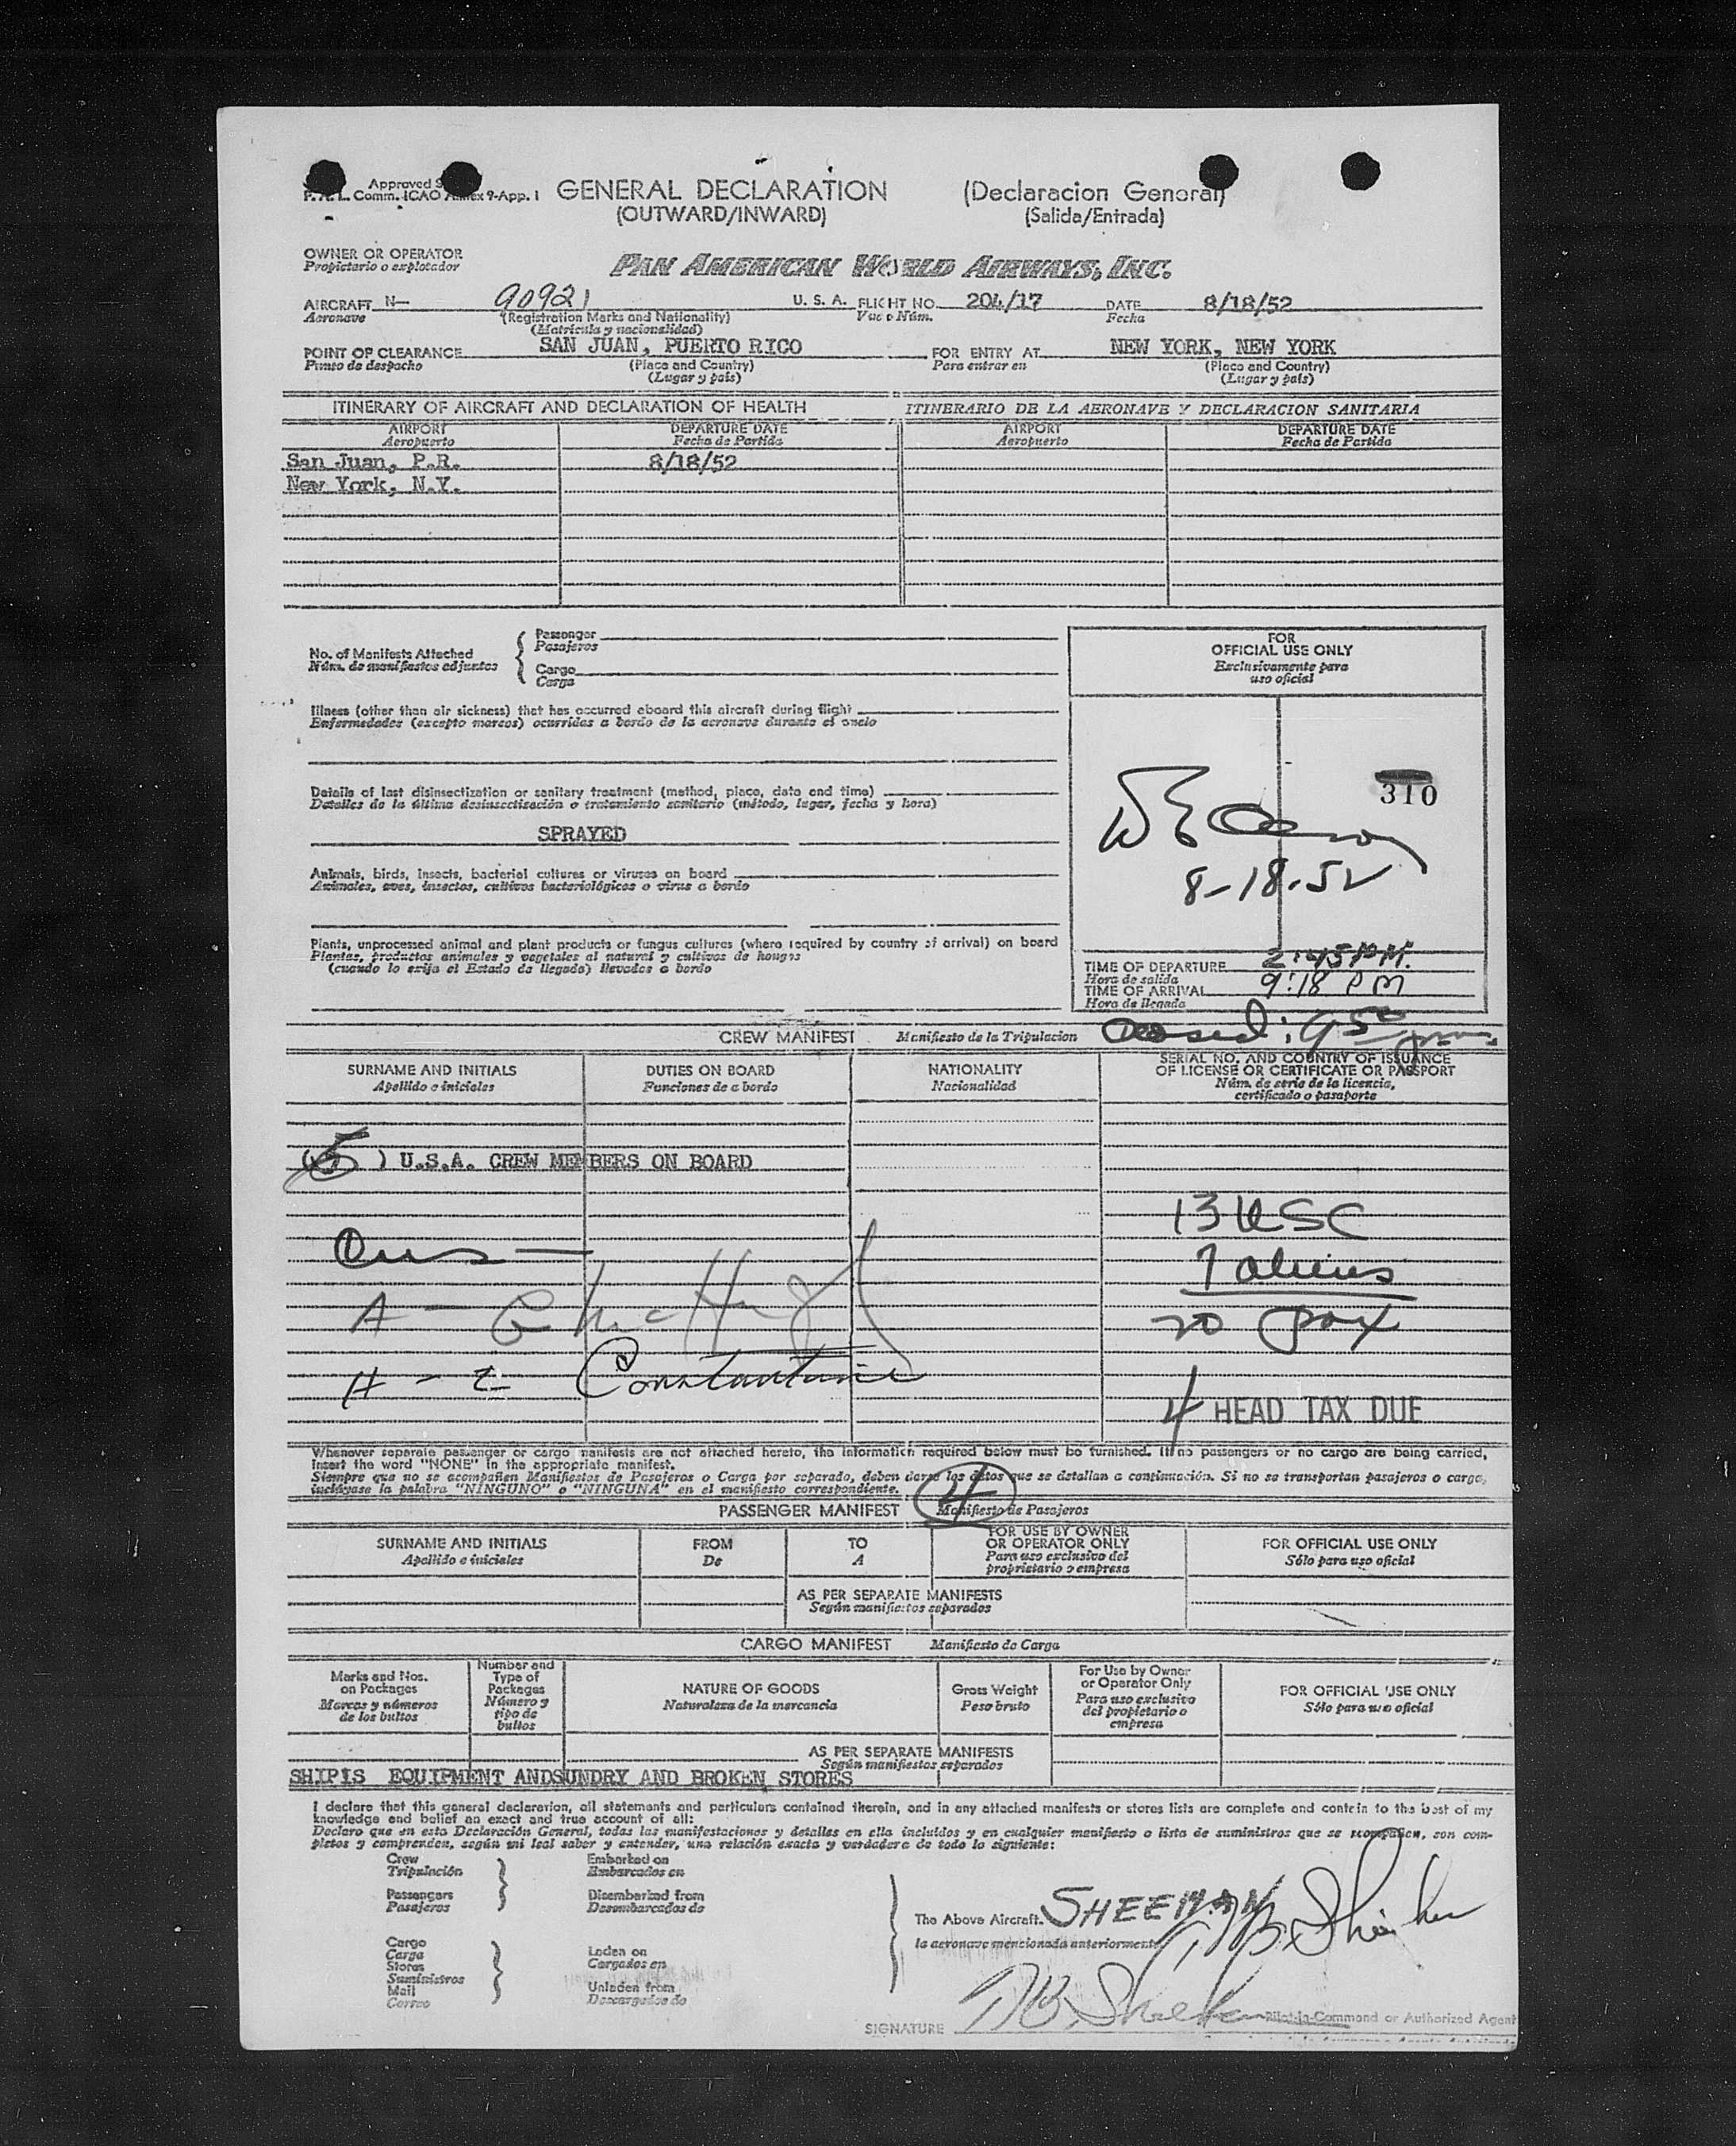 Approved
Comm. ICAO Annex 9-App. 1
GENERAL DECLARATION (Declaracion General)
(OUTWARD/INWARD) (Salida/Entrada)
OWNER OR OPERATOR
Propietario o explotador
PAN AMERICAN WORLD AIRWAYS, INC.
AIRCRAFT N— 90921 U. S. A. FLIGHT NO. 204/17 DATE 8/18/52
Aeronave (Registration Marks and Nationality) Vuelo Núm. Fecha
(Matrícula y nacionalidad)
POINT OF CLEARANCE SAN JUAN, PUERTO RICO FOR ENTRY AT NEW YORK, NEW YORK
Punto de despacho (Place and Country) Para entrar en (Place and Country)
(Lugar y país) (Lugar y país)
ITINERARY OF AIRCRAFT AND DECLARATION OF HEALTH ITINERARIO DE LA AERONAVE Y DECLARACION SANITARIA
AIRPORT DEPARTURE DATE AIRPORT DEPARTURE DATE
Aeropuerto Fecha de Partida Aeropuerto Fecha de Partida
San Juan, P.R. 8/18/52
New York, N.Y.
No. of Manifests Attached
Núm. de manifiestos adjuntos
Passenger
Pasajeros
Cargo
Carga
FOR
OFFICIAL USE ONLY
Exclusivamente para
uso oficial
Illness (other than air sickness) that has occurred aboard this aircraft during flight
Enfermedades (excepto mareos) ocurridas a bordo de la aeronave durante el vuelo
Details of last disinsectization or sanitary treatment (method, place, date and time)
Detalles de la última desinsectización o tratamiento sanitario (método, lugar, fecha y hora)
310
SPRAYED
Animals, birds, insects, bacterial cultures or viruses on board
Animales, aves, insectos, cultivos bacteriológicos o virus a bordo
8-18-52
Plants, unprocessed animal and plant products or fungus cultures (where required by country of arrival) on board
Plantas, productos animales y vegetales al natural y cultivos de hongos
(cuando lo exija el Estado de llegada) llevados a bordo
TIME OF DEPARTURE 2:45 PM.
Hora de salida
TIME OF ARRIVAL 9:18 PM
Hora de llegada
CREW MANIFEST Manifiesto de la Tripulacion
SURNAME AND INITIALS DUTIES ON BOARD NATIONALITY SERIAL NO. AND COUNTRY OF ISSUANCE
OF LICENSE OR CERTIFICATE OR PASSPORT
Apellido e iniciales Funciones de a bordo Nacionalidad Núm. de serie de la licencia,
certificado o pasaporte
(5) U.S.A. CREW MEMBERS ON BOARD
13 USC
7 aliens
20 pax
A -
H - E Constantine
4 HEAD TAX DUE
Whenever separate passenger or cargo manifests are not attached hereto, the information required below must be furnished. If no passengers or no cargo are being carried,
insert the word "NONE" in the appropriate manifest.
Siempre que no se acompañen Manifiestos de Pasajeros o Carga por separado, deben darse los datos que se detallan a continuación. Si no se transportan pasajeros o carga,
inclúyase la palabra "NINGUNO" o "NINGUNA" en el manifiesto correspondiente.
4
PASSENGER MANIFEST Manifiesto de Pasajeros
SURNAME AND INITIALS FROM TO FOR USE BY OWNER
OR OPERATOR ONLY FOR OFFICIAL USE ONLY
Apellido e iniciales De A Para uso exclusivo del
propietario o empresa Sólo para uso oficial
AS PER SEPARATE MANIFESTS
Según manifiestos separados
CARGO MANIFEST Manifiesto de Carga
Marks and Nos.
on Packages
Marcas y números
de los bultos
Number and
Type of
Packages
Número y
tipo de
bultos
NATURE OF GOODS
Naturaleza de la mercancia
Gross Weight
Peso bruto
For Use by Owner
or Operator Only
Para uso exclusivo
del propietario o
empresa
FOR OFFICIAL USE ONLY
Sólo para uso oficial
AS PER SEPARATE MANIFESTS
Según manifiestos separados
SHIPIS EQUIPMENT ANDSUNDRY AND BROKEN STORES
I declare that this general declaration, all statements and particulars contained therein, and in any attached manifests or stores lists are complete and contain to the best of my
knowledge and belief an exact and true account of all:
Declaro que en esta Declaración General, todas las manifestaciones y detalles en ella incluidos y en cualquier manifiesto o lista de suministros que se acompañen, son com-
pletos y comprenden, según mi leal saber y entender, una relación exacta y verdadera de todo lo siguiente:
Crew
Tripulación
Passengers
Pasajeros
Embarked on
Embarcados en
Disembarked from
Desembarcados de
Cargo
Carga
Stores
Suministros
Mail
Correo
Laden on
Cargados en
Unladen from
Descargados de
The Above Aircraft. SHEEHAN
la aeronave mencionada anteriormente
SIGNATURE
Pilot-in-Command or Authorized Agent